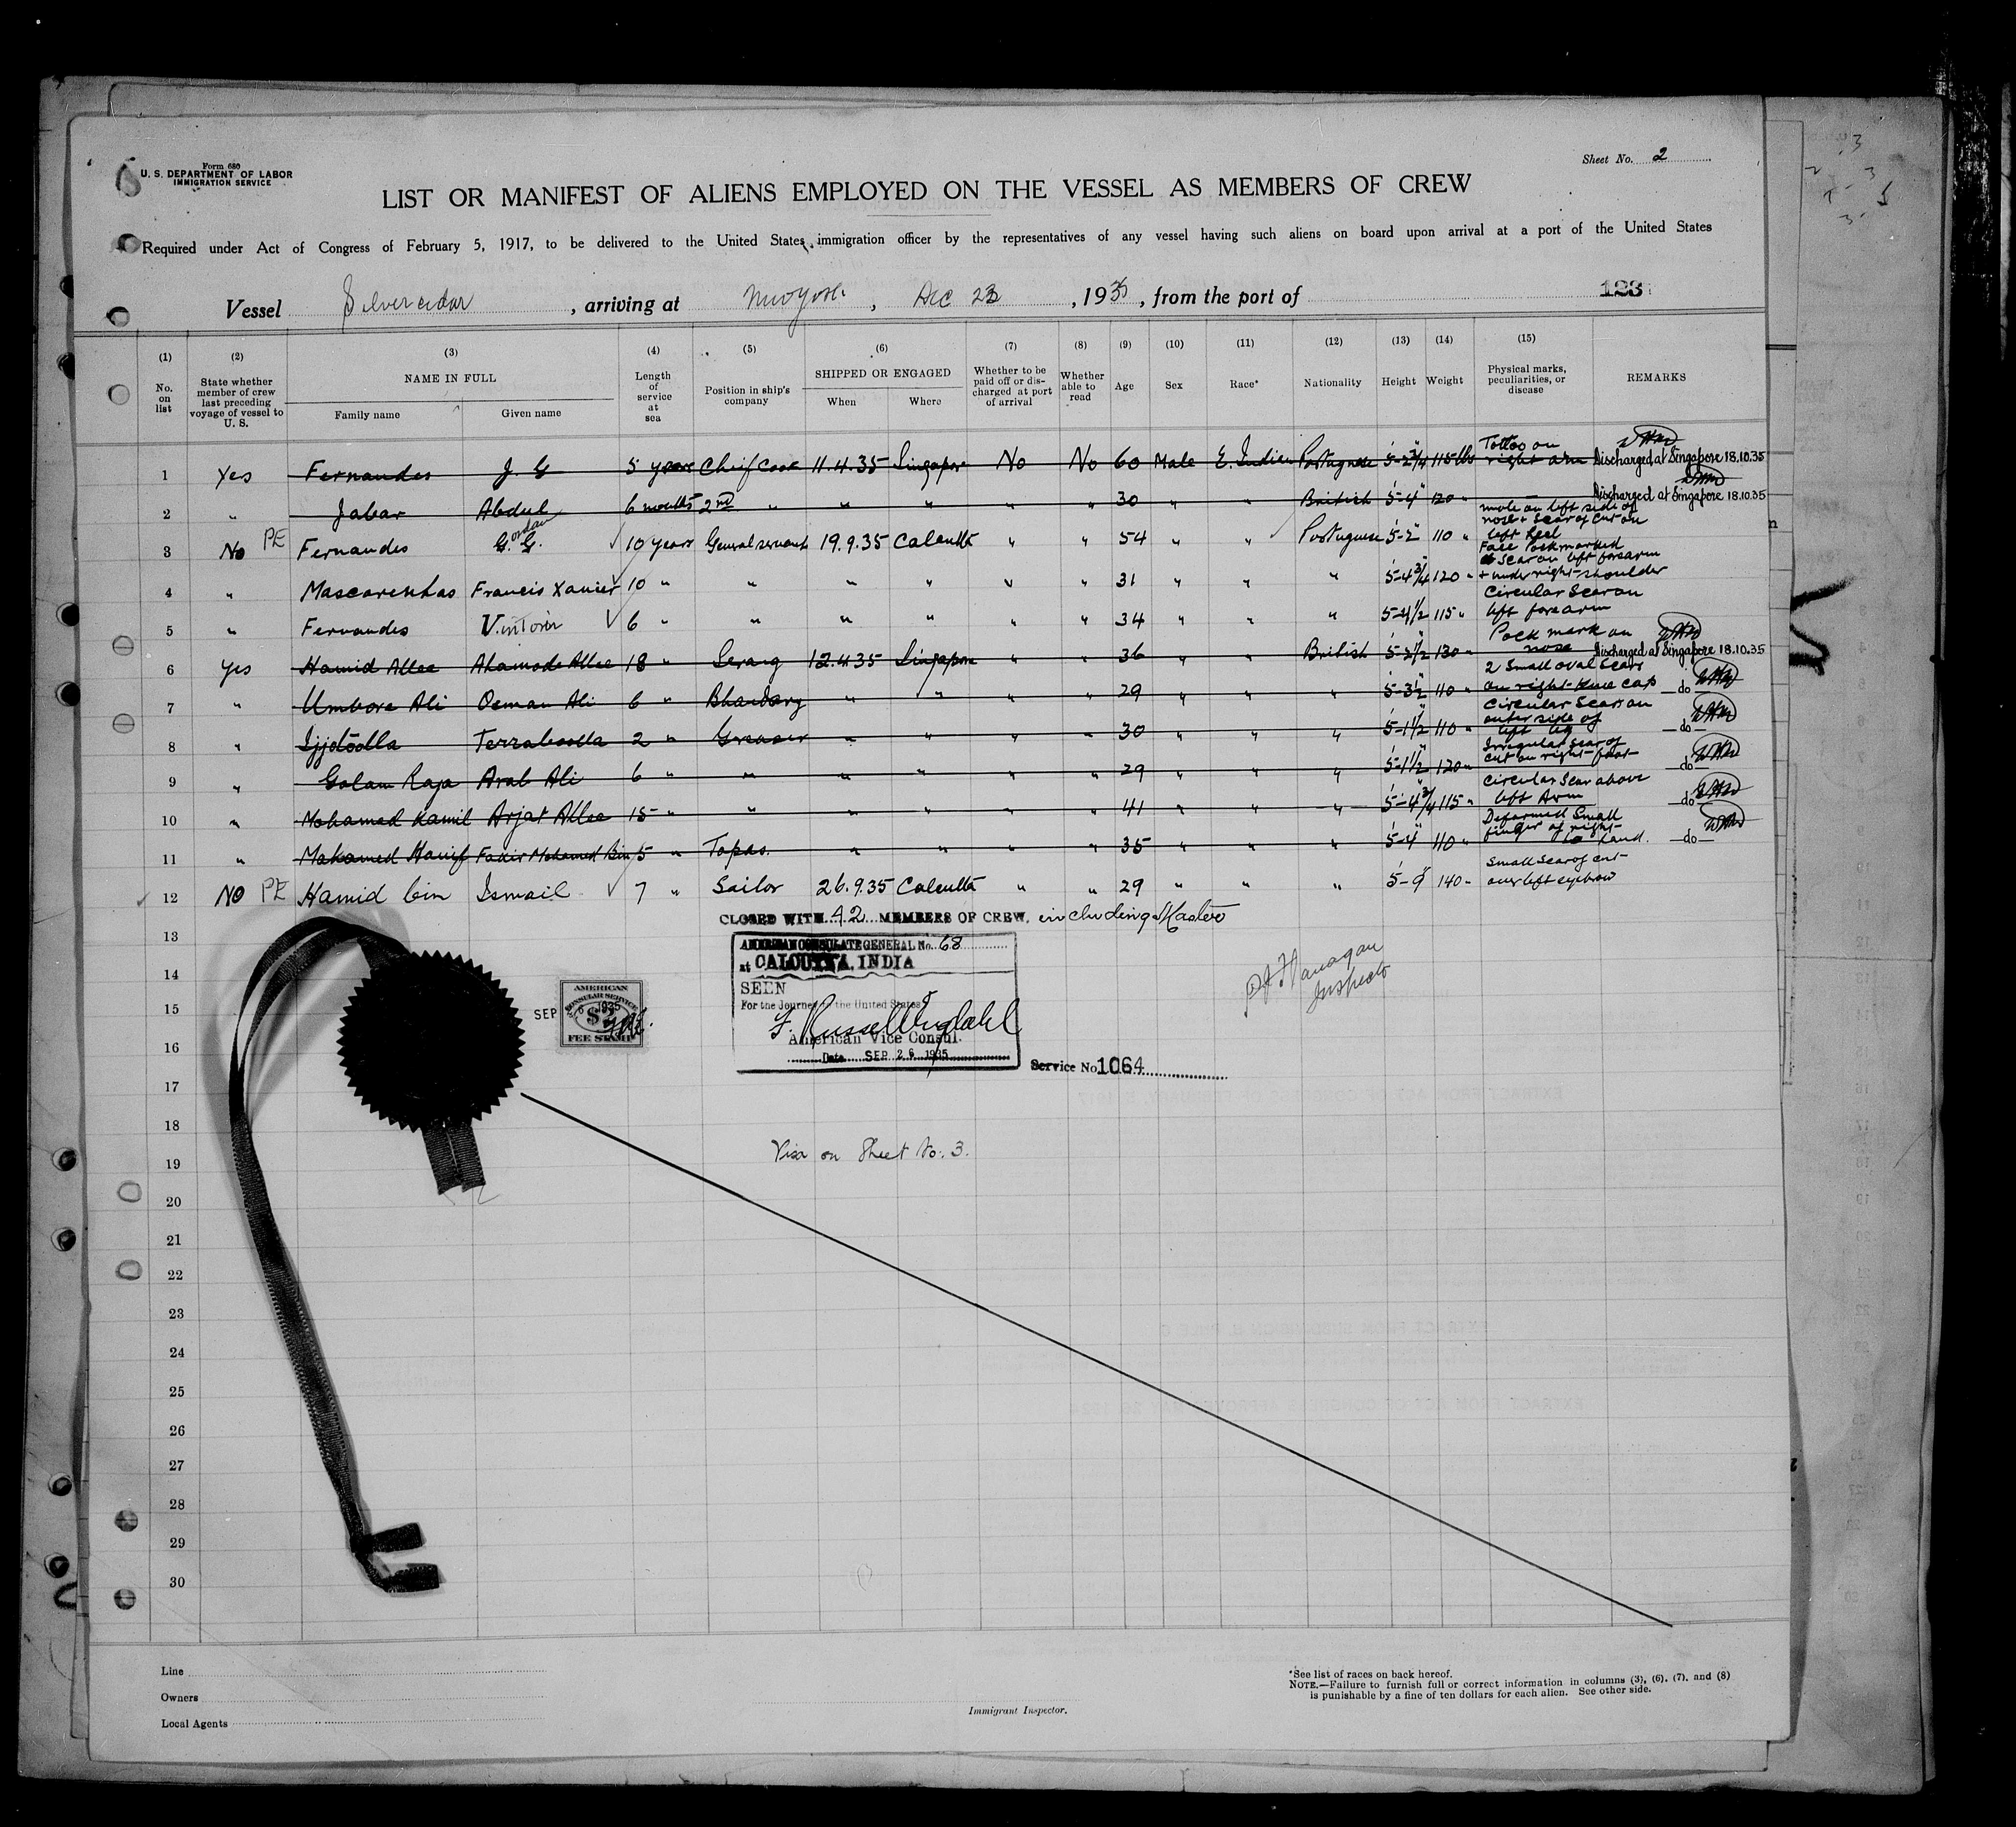 Form 680
U. S. DEPARTMENT OF LABOR
IMMIGRATION SERVICE
Sheet No. 2
LIST OR MANIFEST OF ALIENS EMPLOYED ON THE VESSEL AS MEMBERS OF CREW
Required under Act of Congress of February 5, 1917, to be delivered to the United States immigration officer by the representatives of any vessel having such aliens on board upon arrival at a port of the United States
Vessel Silvercedar, arriving at New York, Dec 23, 1935, from the port of 123
(1) (2) (3) (4) (5) (6) (7) (8) (9) (10) (11) (12) (13) (14) (15)
No. on list
State whether member of crew last preceding voyage of vessel to U. S.
NAME IN FULL
Family name
Given name
Length of service at sea
Position in ship's company
SHIPPED OR ENGAGED
When
Where
Whether to be paid off or discharged at port of arrival
Whether able to read
Age
Sex
Race*
Nationality
Height
Weight
Physical marks, peculiarities, or disease
REMARKS
1 Yes Fernandes J. G 5 years Cheif Cook 11.4.35 Singapor No No 60 Male E. Indian Portuguese 5-2 3/4" 115 lbs Tattoo on right arm Discharged at Singapore 18.10.35
2 " Jabar Abdul 6 months 2nd " " " " " 30 " " British 5-4" 120 " — Discharged at Singapore 18.10.35
3 No PE Fernandes G. G. 10 years General servant 19.9.35 Calcutta " " 54 " " Portuguese 5-2" 110 " mole on left side of nose + scar of cut on left heel
4 " Mascarenhas Francis Xavier 10 " " " " " " 31 " " " 5-4 3/4" 120 " Face Pockmarked scar on left forearm + under right shoulder
5 " Fernandes 6 " " " " " " 34 " " " 5-4 1/2 115 " Circular Scar on left forearm
6 Yes Hamid Allee Ahamode Allee 18 " Serang 12.4.35 Singapore " " 36 " " British 5-2 1/2" 130 " Pock mark on nose Discharged at Singapore 18.10.35
7 " Umbore Ali Osman Ali 6 " Bhandary " " " " 29 " " " 5-3 1/2" 110 " 2 Small oval Scars on right knee cap —do—
8 " Ijjdoolla Terraboolla 2 " Greaser " " " " 30 " " " 5-1 1/2" 110 " Circular Scar on outer side of left leg —do—
9 " Golam Raja Arab Ali 6 " " " " " " 29 " " " 5-1 1/2" 120 " Irregular scar of cut on right foot —do—
10 " Mohamed Kamil Arjat Allee 15 " " " " " " 41 " " " 5-4 3/4" 115 " Circular Scar above left Arm —do—
11 " Mohamed Hanif Fakir Mohamed Bin 5 " Topas. " " " " 35 " " " 5-4" 110 " Deformed Small finger of right hand. —do—
12 NO PE Hamid bin Ismail 7 " Sailor 26.9.35 Calcutta " " 29 " " " 5-9" 140 " Small scar of cut over left eyebrow
CLOSED WITH 42 MEMBERS OF CREW. including Master
13
AMERICAN CONSULATE GENERAL No. 68
at CALCUTTA, INDIA
14
SEEN
For the Journey to the United States
American Vice Consul.
Date SEP 26 1935
Service No 1064
D J Flanagan
Inspector
15
SEP
AMERICAN
CONSULAR SERVICE
1935
$2
FEE STAMP
16
17
18
Visa on Sheet No: 3.
19
20
21
22
23
24
25
26
27
28
29
30
Line
Owners
Local Agents
Immigrant Inspector.
*See list of races on back hereof.
NOTE.—Failure to furnish full or correct information in columns (3), (6), (7), and (8)
is punishable by a fine of ten dollars for each alien. See other side.